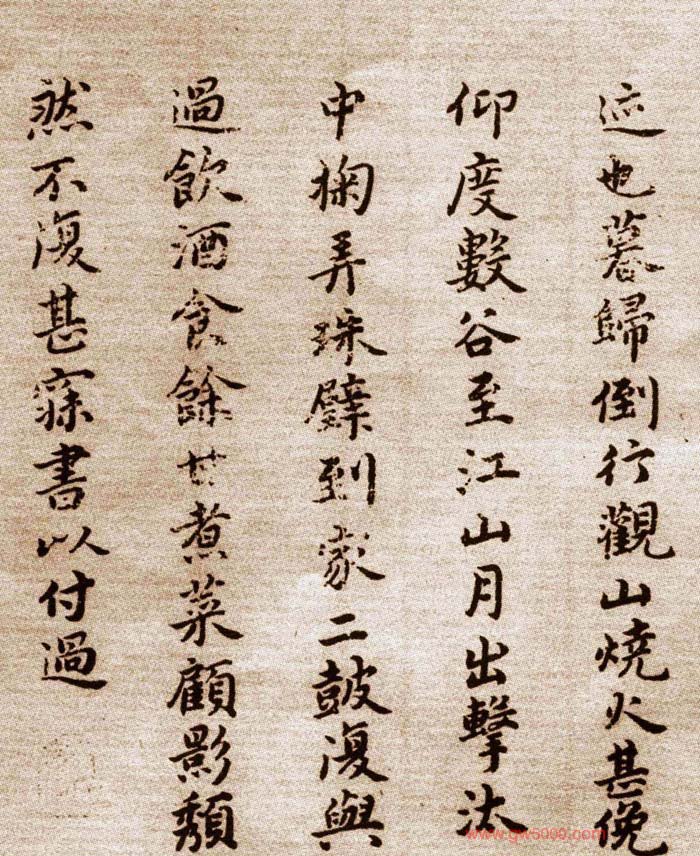 迹也暮歸倒行觀山燒火甚俛
仰度數谷至江山月出擊汰
中掬弄珠璧到家二鼓復與
過飲酒食餘甘煮菜顧影頹
然不復甚寐書以付過